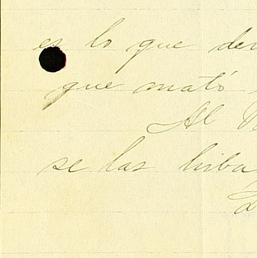 es lo que der
que mató
Al V
se las hiba